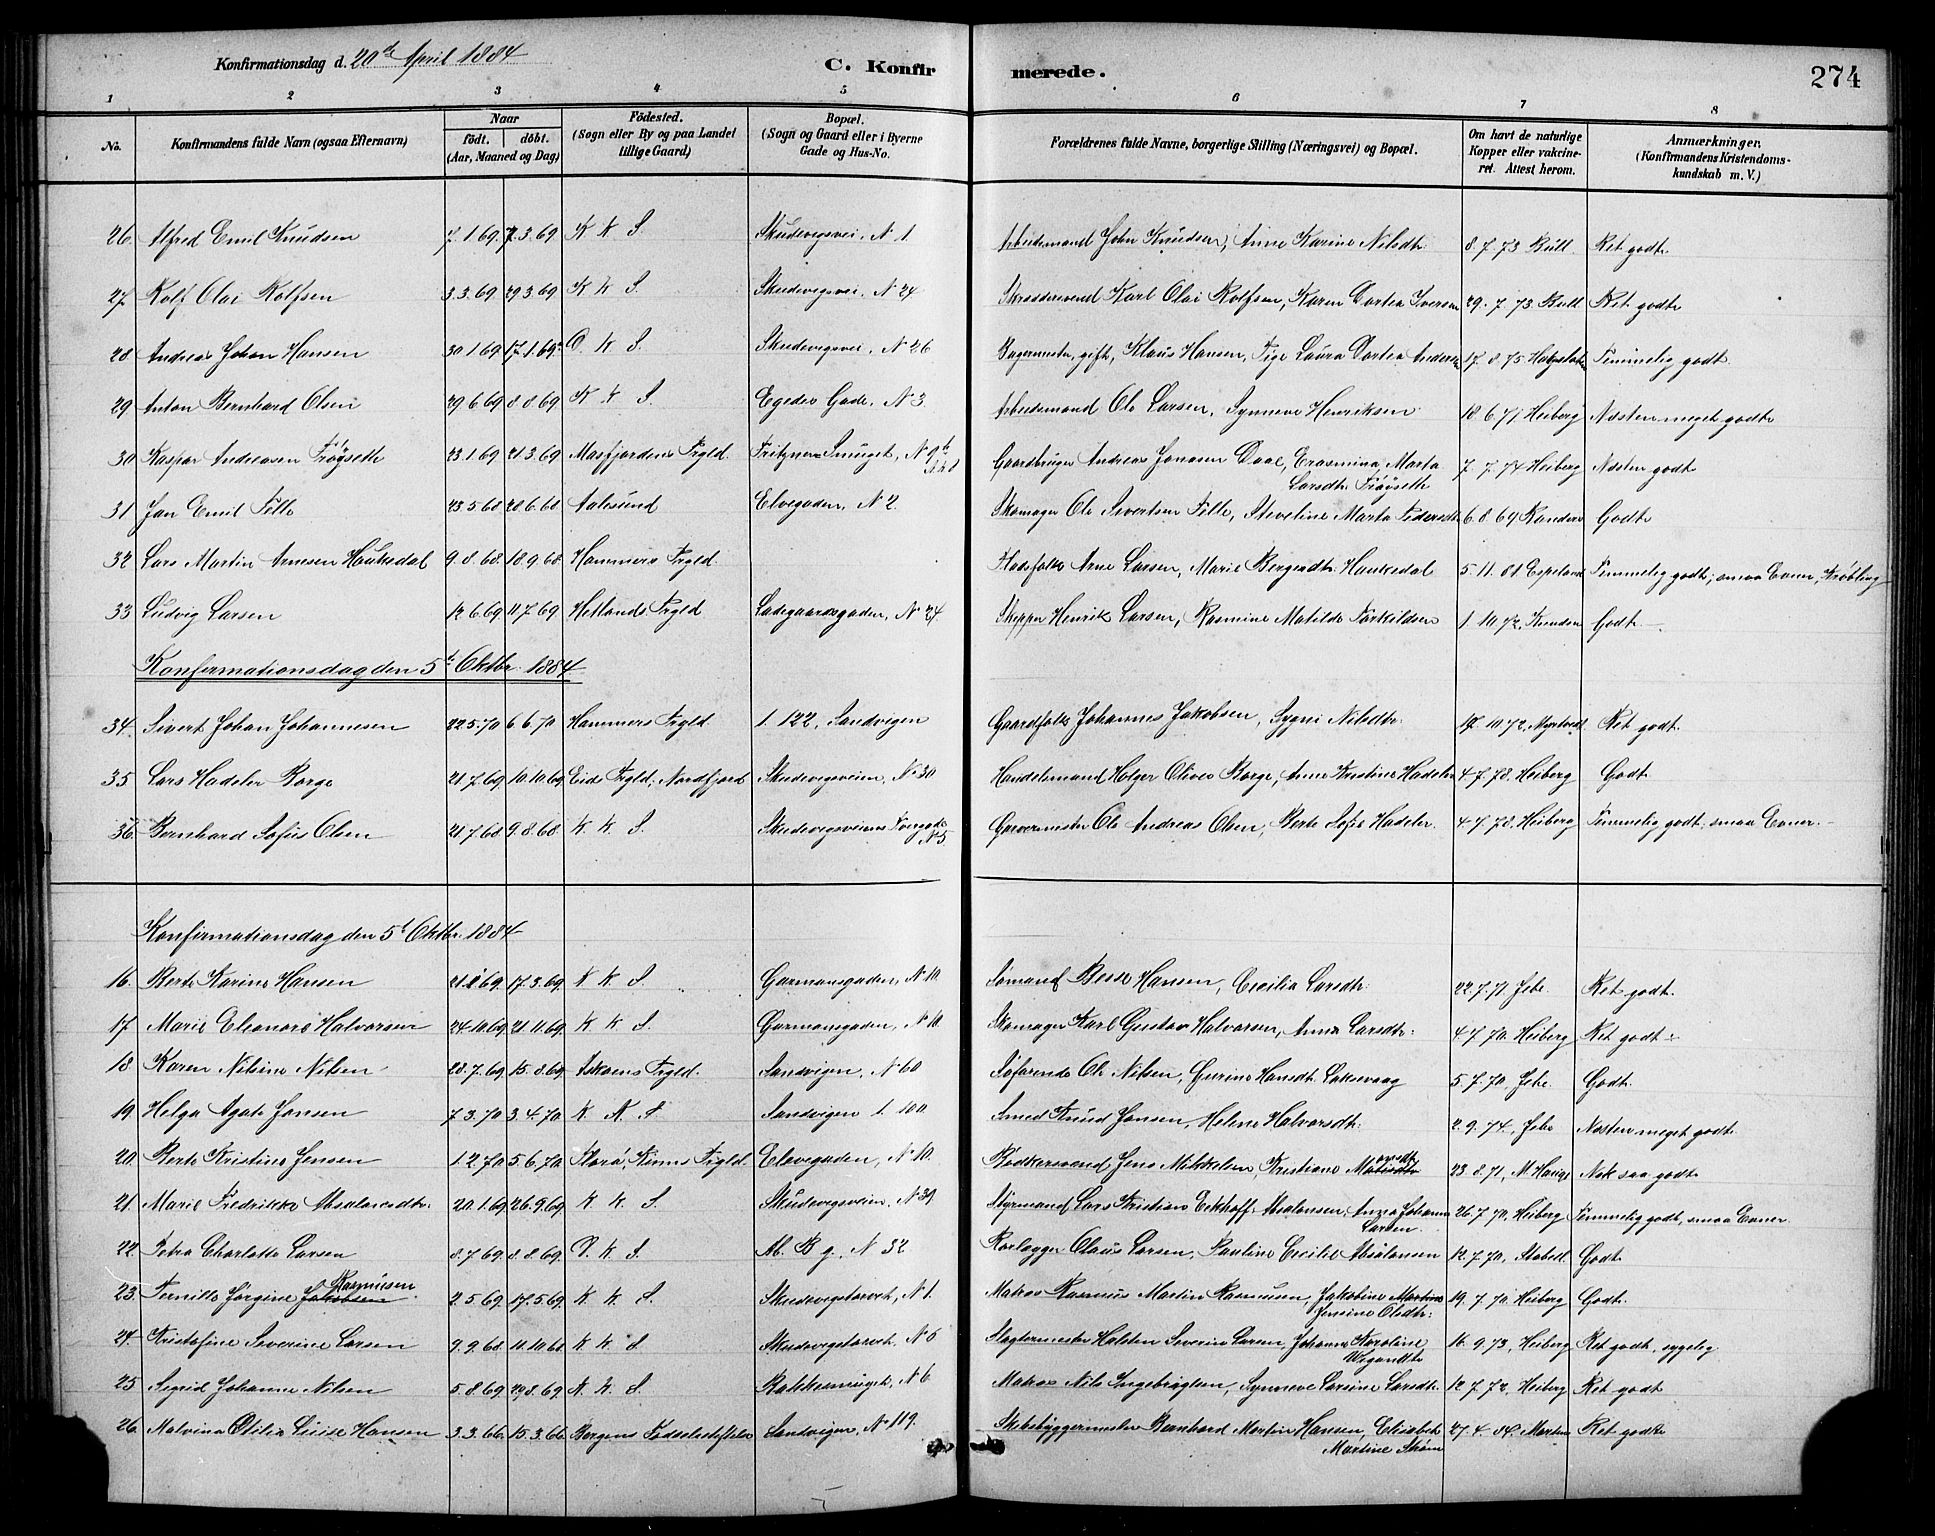 Konfirmationsdag d. 20de April 1884
C. Konfirmerede.
274
1 2 3 4 5 6 7 8
No. Konfirmandens fulde Navn (ogsaa Efternavn) Naar født. døbt. (Aar, Maaned og Dag) Fødested. (Sogn eller By og paa Landet tillige Gaard) Bopæl. (Sogn og Gaard eller i Byerne Gade og Hus-No. Forældrenes fulde Navne, borgerlige Stilling (Næringsvei) og Bopæl. Om havt de naturlige Kopper eller vakcineret. Attest herom. Anmærkninger. (Konfirmandens Kristendomskundskab m. V.)
26. Alfred Emil Knudsen 7.1.69. 7.3.69 K K S. Skudevigsvei, N 1. Arbeidsmand John Knudsen, Anne Karine Nilsdtr. 8.7.73 Bull. Ret godt.
27. Rolf Olai Rolfsen 3.3.69 29.3.69 K K S. Skudevigsvei, N 24 Skræddersvend Karl Olai Rolfsen, Karen Dortea Iversen 29.7.73. Bull Ret godt
28 Andreas Johan Hansen 30.1.69 17.1.69. D. K S. Skudevigsvei, N 26 Bagermester, gift, Klaus Hansen, Pige Laura Dortea Anders 17.8.75 Temmelig godt
29 Anton Bernhard Olsen 29.6.69 8.8.69 K K S. Egedes Gade, N 3. Arbeidsmand Ole Larsen, Synneve Henriksen 18.6.71 Heiberg Næsten meget godt
30 Kaspar Andreasen Frøyseth 23.1.69 21.3.69 Masfjordens Prgld. Fritzners Smuget, N 9b Gaardbruger Andreas Jonasen Daae, Erasmina Marta Larsdtr. Frøyseth 7.7.74 Heiberg Næsten godt
31 Jan Emil Tille 23.5.68 28.6.68 Aalesund Elvegaden, N 2. Skomager Ole Sivertsen Tille, Steveline Marta Pedersdtr 6.8.69 Randers Godt
32 Lars Martin Arnesen Haukedal 9.8.68. 18.9.68. Hammers Prgld. Pladsfolk Arne Larsen, Marie Bergesdtr. Haukedal 5.11.81 Espeland Temmelig godt; smaa Evner,
33 Ludvig Larsen 12.6.69 11.7.69 Hetlands Prgld Ladegaardsgaden, N 24. Skipper Henrik Larsen, Rasmine Matilde Torkildsen 1.10.72, Knudsen Godt.
Konfirmationsdag den 5te Oktbr. 1884
34. Sivert Johan Johannesen 22.5.70 6.6.70 Hammers Prgld 1. 122, Sandvigen Gaardfolk Johannes Jakobsen, Sygni Nilsdtr. 17.10.72, Myrtvedt Ret godt.
35. Lars Hadeler Borge 21.7.69 10.10.69 Eids Prgld; Nordfjord Skudevigsveien, No 30 Handelsmand Holger Oliver Borge, Anne Kristine Hadeler 4.7.78. Heiberg Godt.
36. Bernhard Sofus Olsen 21.7.68 9.8.68. K K. S. Skudevigsveiens Tvergade N 5. Gravermester Ole Andreas Olsen, Berte Sofie Hadeler. 4.7.78, Heiberg Temmelig godt; smaa Evner.
Konfirmationsdag den 5te Oktbr. 1884
16. Berte Karine Hansen 21.1.69. 17.3.69. K K. S Garmansgaden, N 10. Sømand Besse Hansen, Cecilia Larsdtr. 22.7.71. Jebe. Ret godt.
17 Marie Eleanore Halvorsen 24.10.69 21.11.69. K K S. Garmansgaden, N 10. Skomager Karl Gustav Halvorsen, Anna Larsdtr. 4.7.70. Heiberg Ret godt.
18 Karen Nilsine Nilsen 28.7.69 15.8.69 Askøens Prgld. Sandvigen, N 60 Søfarende Ole Nilsen, Gurine Hansdtr. Laksevaag 5.7.70. Jebe. Godt.
19. Helga Agate Jansen 7.3.70 3.4.70 K. N. S Sandvigen 1. 100 Smed Knud Jansen, Helene Halvorsdtr. 2.9.74, Jebe Næsten meget godt
20. Berte Kristine Jensen 1.2.70 5.6.70 Florø, Kinns Prgld. Elvegaden, N 10. Bødkersvend Jens Mikkelsen, Kristiane 23.8.71, M. Haug Nok saa godt
21. Marie Fredrikke Absalonsdtr. 20.1.69 26.9.69 K K. S. Skudevigsveien, N 39. Styrmand Lars Kristian Eckhoff Absalonsen, Anna Johanna Larsen. 26.7.70, Heiberg Temmelig godt, smaa Evner.
22. Petra Charlotte Larsen 8.7.69 8.8.69 D. K. S. Ab. B g. N 32 Rorlægger Claus Larsen, Pauline Cecilie Absalonsen 12.7.70, Stabell. Godt.
23. Pernille Jørgine Jakobsen Rasmusen. 2.5.69 17.5.69 K. K. S. Skudevigstorvet, N 1. Matros Rasmus Martin Rasmusen, Jakobine Martine Jensine Olsdtr. 19.7.70. Heiberg Godt.
24. Kristofine Severine Larsen 9.9.68 11.10.68 K. K. S. Skudevigstorvet. N 6 Slagtermester Halsten Severin Larsen, Johanne Karoline Wigandtr. 16.9.73, Heiberg Ret godt, sygelig
25 Sigrid Johanne Nilsen 5.8.69 29.8.69 K. K. S Bakkesmuget, N 6. Matros Nils Ingebrigtsen, Synneve Larsine Larsdtr. 12.7.72, Heiberg Ret godt
26. Malvina Otilia Luise Hansen 3.3.66 15.3.66 Bergens Fødselsstiftelse Sandvigen, No 119. Skibsbyggermester Bernhard Martin Hansen, Elisabet Martine Strøm 27.4.84. Martens Ret godt